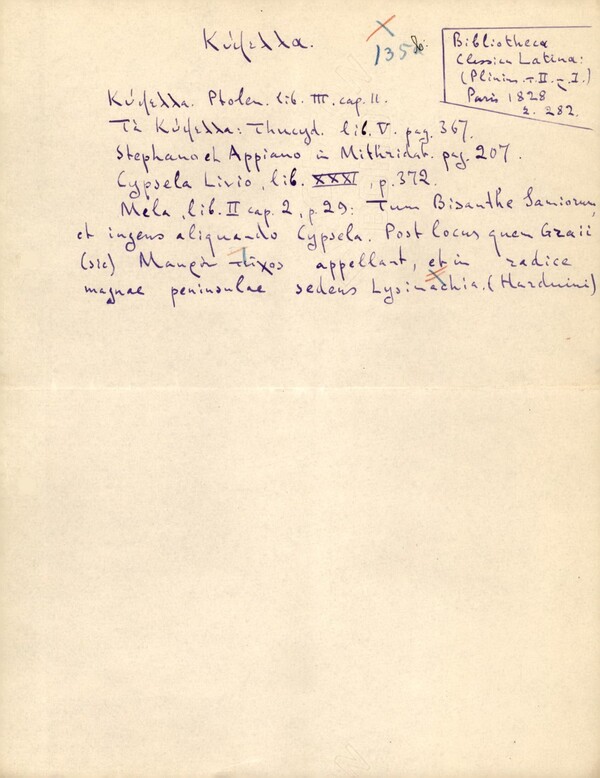 Κύψελλα.
135 80.
Bibliotheca
Classica Latina:
(Plinius. T. II. - I.)
Paris 1828
σ. 282.
Κύψελλα. Ptolem. lib. III. cap. 11.
Τὰ Κύψελλα: Thucyd. lib. V. pag. 367.
Stephano et Appiano in Mithridat. pag. 207.
Cypsela Livio, lib. XXXI, p. 372.
Mela, lib. II cap. 2, p. 29: Tum Bisanthe Samiorum,
et ingens aliquando Cypsela. Post locus quem Graii
(sic) Μακρὸν τεῖχος appellant, et in radice
magnae peninsulae sedens Lysimachia. (Harduini)